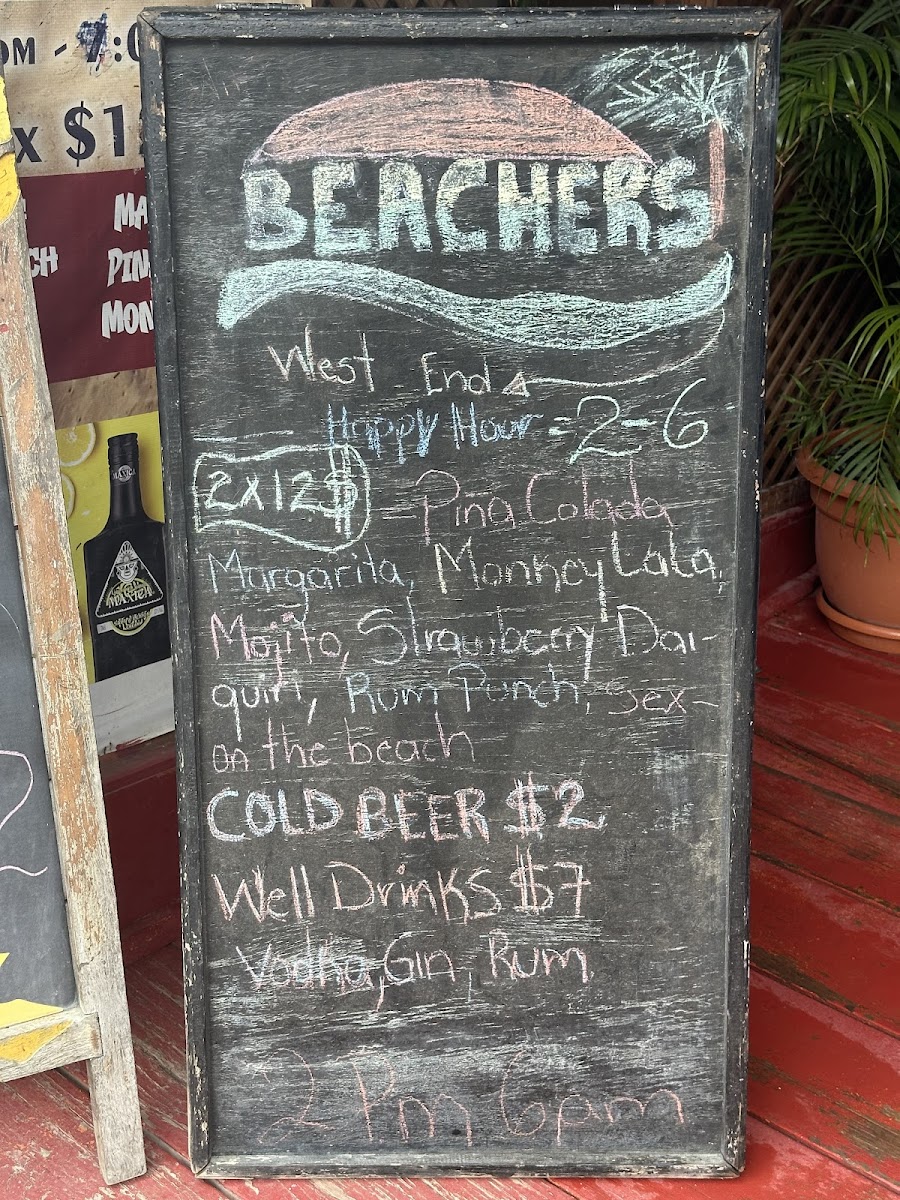 BEACHERS
West End
Happy Hour =2-6
2x12$ - Piña Colada
Margarita, Monkey Lala,
Mojito, Strawberry Dai-
quiri, Rum Punch, Sex-
on the beach
COLD BEER $2
Well Drinks $7
Vodka, Gin, Rum
2 Pm 6pm
OM - 7:0
x $1
MA
CH PIN
MON
MAXICA